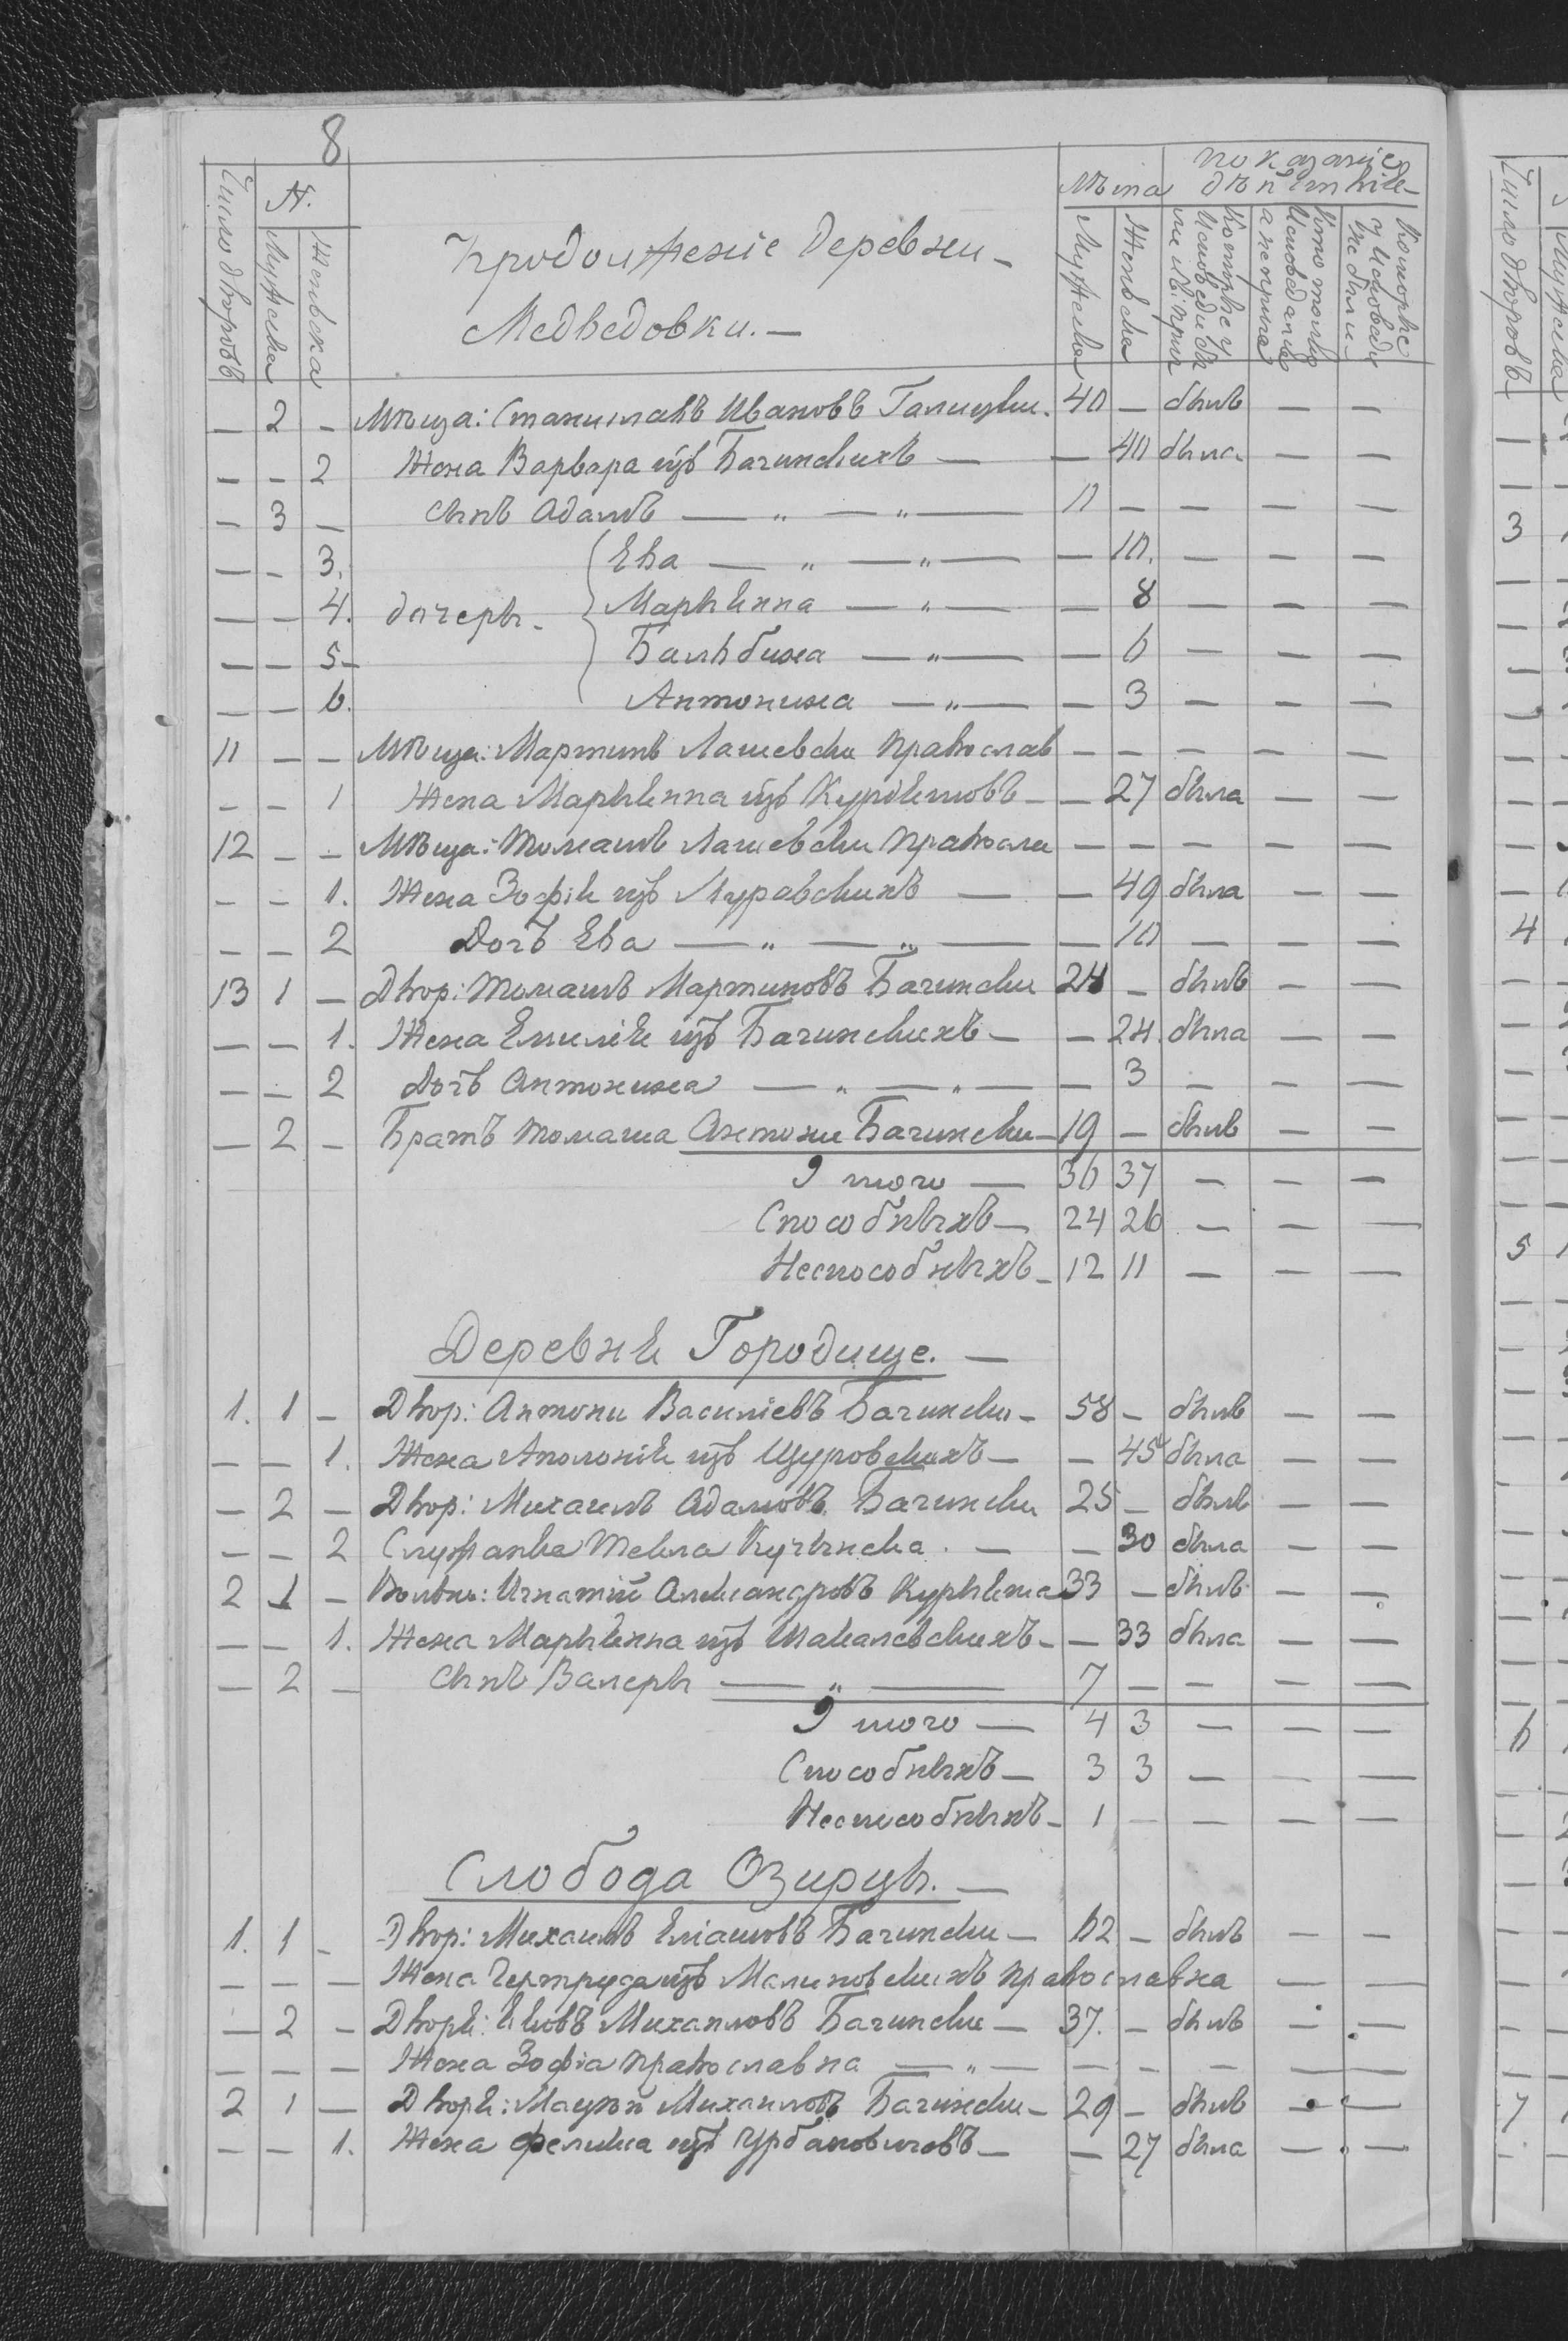 8
Число дворовъ
N.
Мужеска
Женьска
Продолженіе деревни –
Медведовки. –
Мѣта
Мужеска
Женьска
показаніе
Которые у
Исповеди бы
Исповеданы
Которые
у Исповеди
не были –
– 2 – Мѣща: Станиславъ Ивановъ Галицки. 40 – былъ – –
– – 2 Жена Варвара изъ Багинскихъ – – 40 была – –
– 3 – Сынъ Адамъ — „ — „ — 11 – – – –
– – 3. Ева — „ — „ — – 10. – – –
– – 4. дочеры – Марыянна — „ — – 8 – – –
– – 5 – Бальбина — „ — – 6 – – –
– – 6. Антонина — „ — – 3 – – –
11 – – Мѣща: Мартинъ Лашевски Православ – – – – –
– – 1 Жена Марыянна изъ – – 27 была – –
12 – – Мѣща: Томашъ Лашевски Правосла – – – – –
– – 1. Жена Зофія изъ Муравскихъ – – 49 была – –
– – 2 Дочъ Ева — „ — „ — – 10 – – –
13 1 – Двор: Томашъ Мартиновъ Багински 24 – былъ – –
– – 1. Жена Емилія изъ Багинскихъ – – 24 была – –
– – 2 Дочъ Антонина — „ — „ — – 3 – – –
– 2 – Братъ Томаша Антони Багински – 19 – былъ – –
Итого — 36 37 – – –
Способныхъ – 24 26 – – –
Неспособныхъ – 12 11 – – –
Деревня Городище. –
1. 1 – Двор: Антони Василіевъ Багински – 58 – былъ – –
– – 1. Жена Аполонія изъ Щуровскихъ – – 45 была – –
– 2 – Двор: Михаилъ Адамовъ Багински 25 – былъ – –
– – 2 Служанка Текла Кучинска. – – 30 была – –
2 1 – Вольны: Игнатій Александровъ 33 – былъ – –
– – 1. Жена Марыянна изъ Шакалевскихъ – – 33 была – –
– 2 – Сынъ Валеры — „ — 7 – – – –
Итого — 4 3 – – –
Способныхъ – 3 3 – – –
Неспособныхъ – 1 – – – –
Слобода Озирцы. –
1. 1 – Двор: Михаилъ Еліашовъ Багински – 62 – былъ – –
– – – Жена Гертруда изъ Малиновскихъ православна – –
– 2 – Дворя: Яковъ Михаиловъ Багински – 37. – былъ – –
– – – Жена Зофіа православна — „ — – – – – –
2 1 – Дворя: Мацѣй Михаиловъ Багински – 29 – былъ – –
– – 1. Жена Фелика изъ Урбановичовъ – – 27 была – –
Число дворовъ
Мужеска
3
4
5
6
7